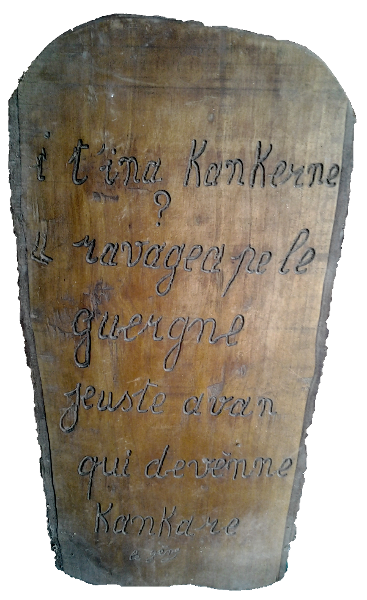 i t'ina KanKerne
?
ravageape le
guergne
jeuste avan
qui devenne
KanKare